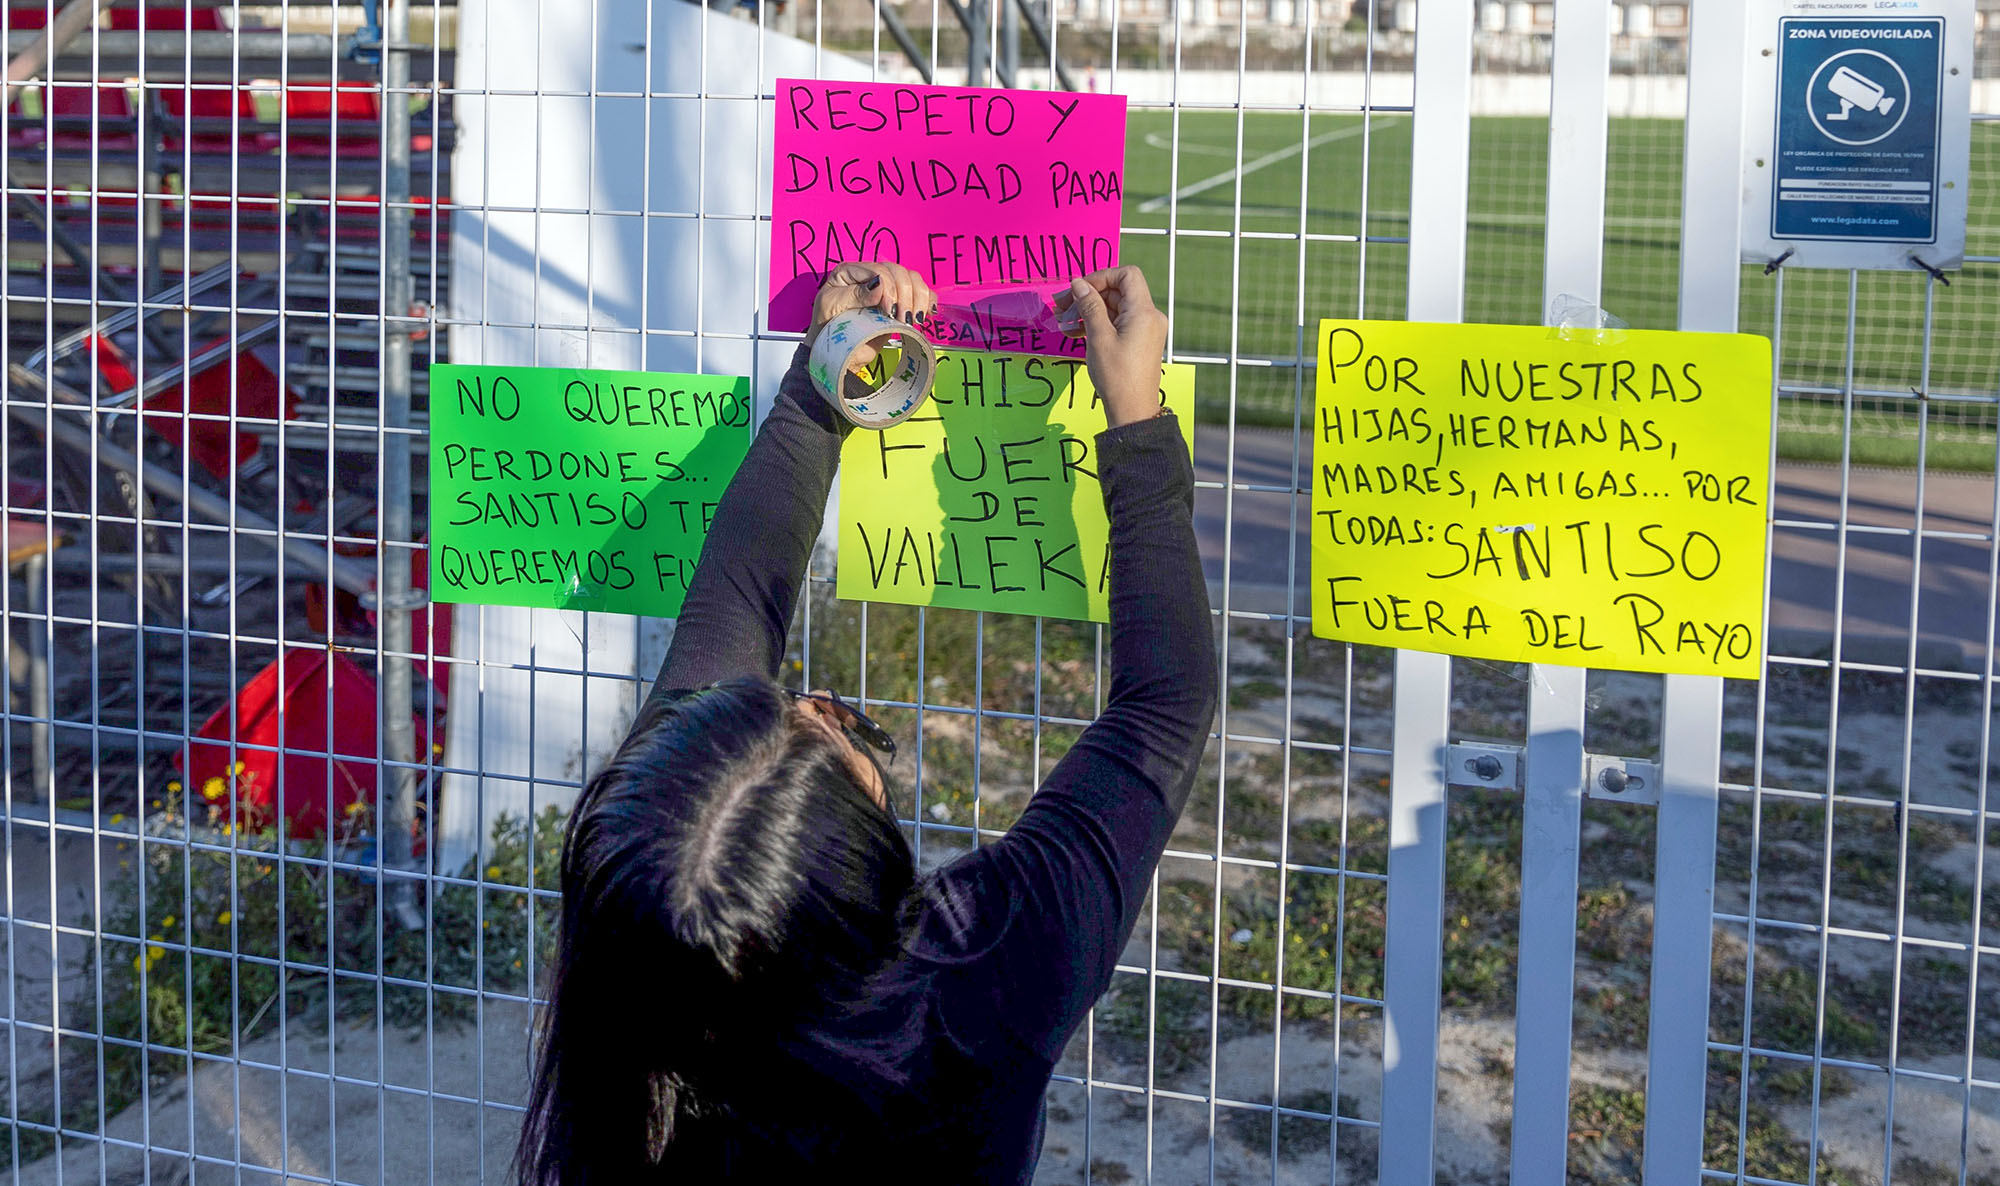 RESPETO Y
DIGNIDAD PARA
RAYO FEMENINO
VETE YA
NO QUEREMOS
PERDONES...
SANTISO TE
QUEREMOS
FUER
DE
VALLEKA
POR NUESTRAS
HIJAS, HERMANAS,
MADRES, AMIGAS... POR
TODAS: SANTISO
FUERA DEL RAYO
CARTEL FACILITADO POR LEGADATA
ZONA VIDEOVIGILADA
LEY ORGÁNICA DE PROTECCIÓN DE DATOS, 15/1999
PUEDE EJERCITAR SUS DERECHOS ANTE:
FUNDACION RAYO VALLECANO
CALLE RAYO VALLECANO DE MADRID, 2 C.P. 28031 MADRID
www.legadata.com